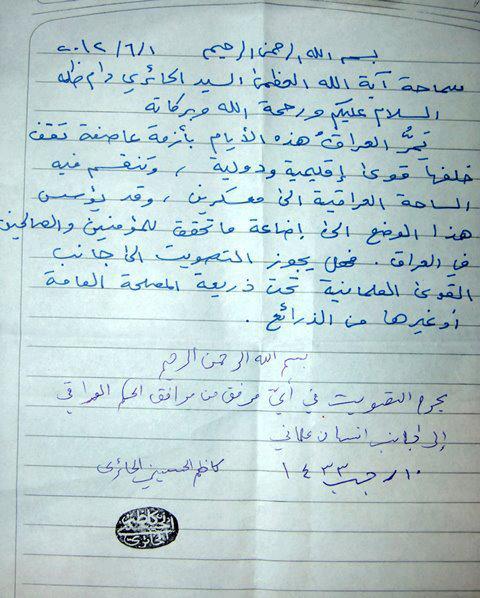 بسم الله الرحمن الرحيم ٢٠١٢/٦/١
سماحة آية الله العظمى السيد الحائري دام ظله
السلام عليكم ورحمة الله وبركاته
تمرُّ العراقُ هذه الأيام بأزمة عاصفة تقف
خلفها قوى إقليمية ودولية، وتنقسم فيه
الساحة العراقية الى معسكرين، وقد يؤسس
هذا الوضع الى إضاعة ما تحقق للمؤمنين والصالحين
في العراق. فهل يجوز التصويت الى جانب
القوى العلمانية تحت ذريعة المصلحة العامة
أو غيرها من الذرائع.
بسم الله الرحمن الرحيم
يحرم التصويت في أيّ مرفق من مرافق الحكم العراقي
إلى جانب انسان علماني
١٠ رجب ١٤٣٣ كاظم الحسيني الحائري